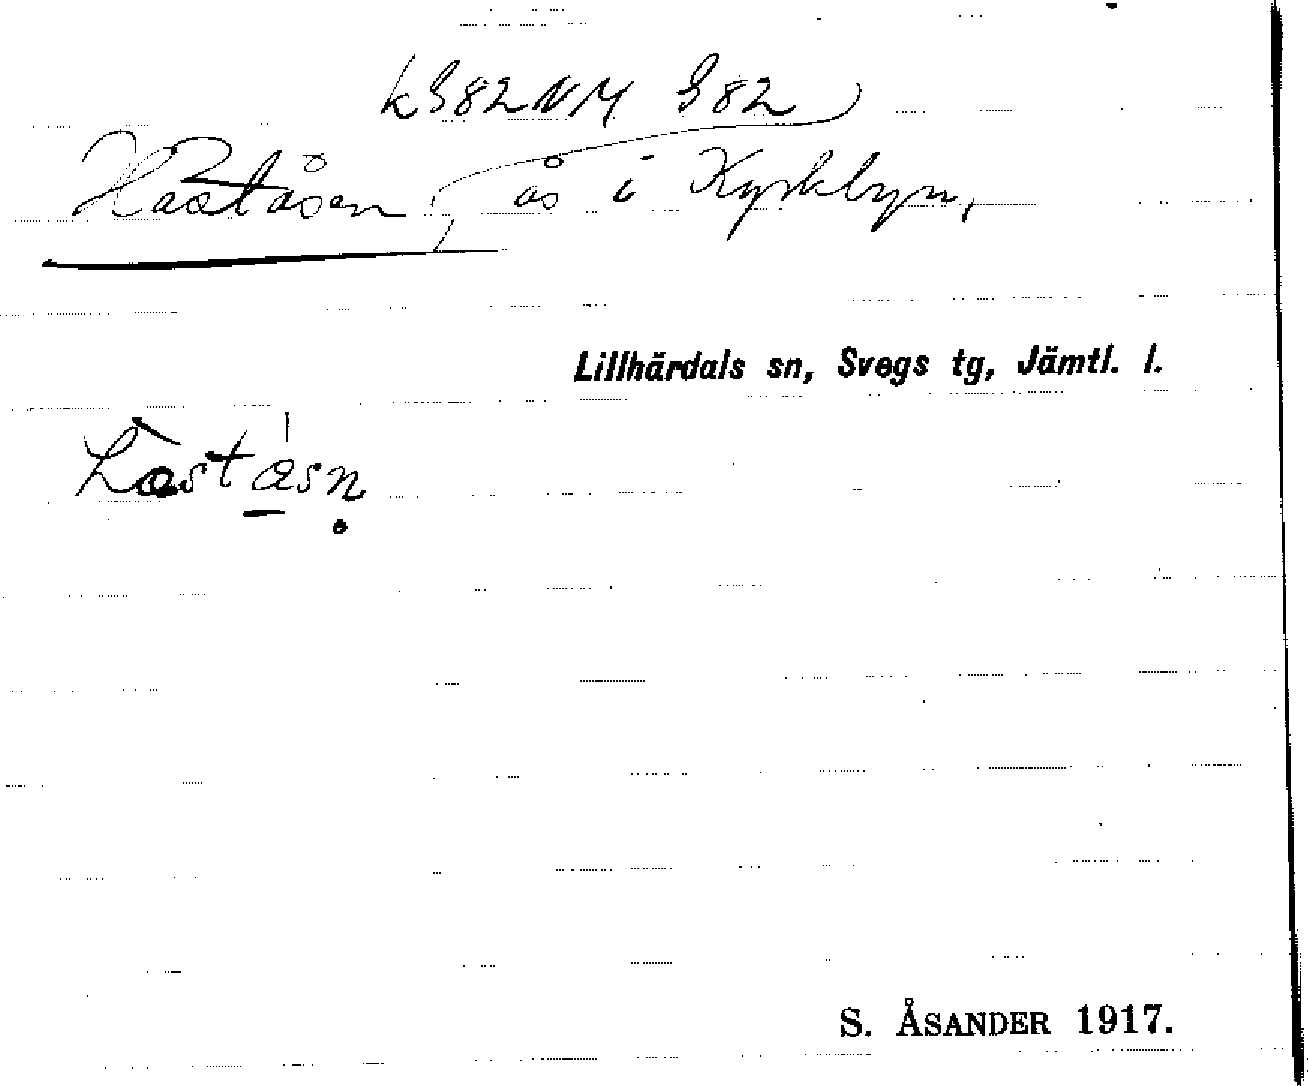 k982NM 982
Håståsen, ås i Kyrkbyn,
Lillhärdals sn, Svegs tg, Jämtl. l.
S. ÅSANDER 1917.